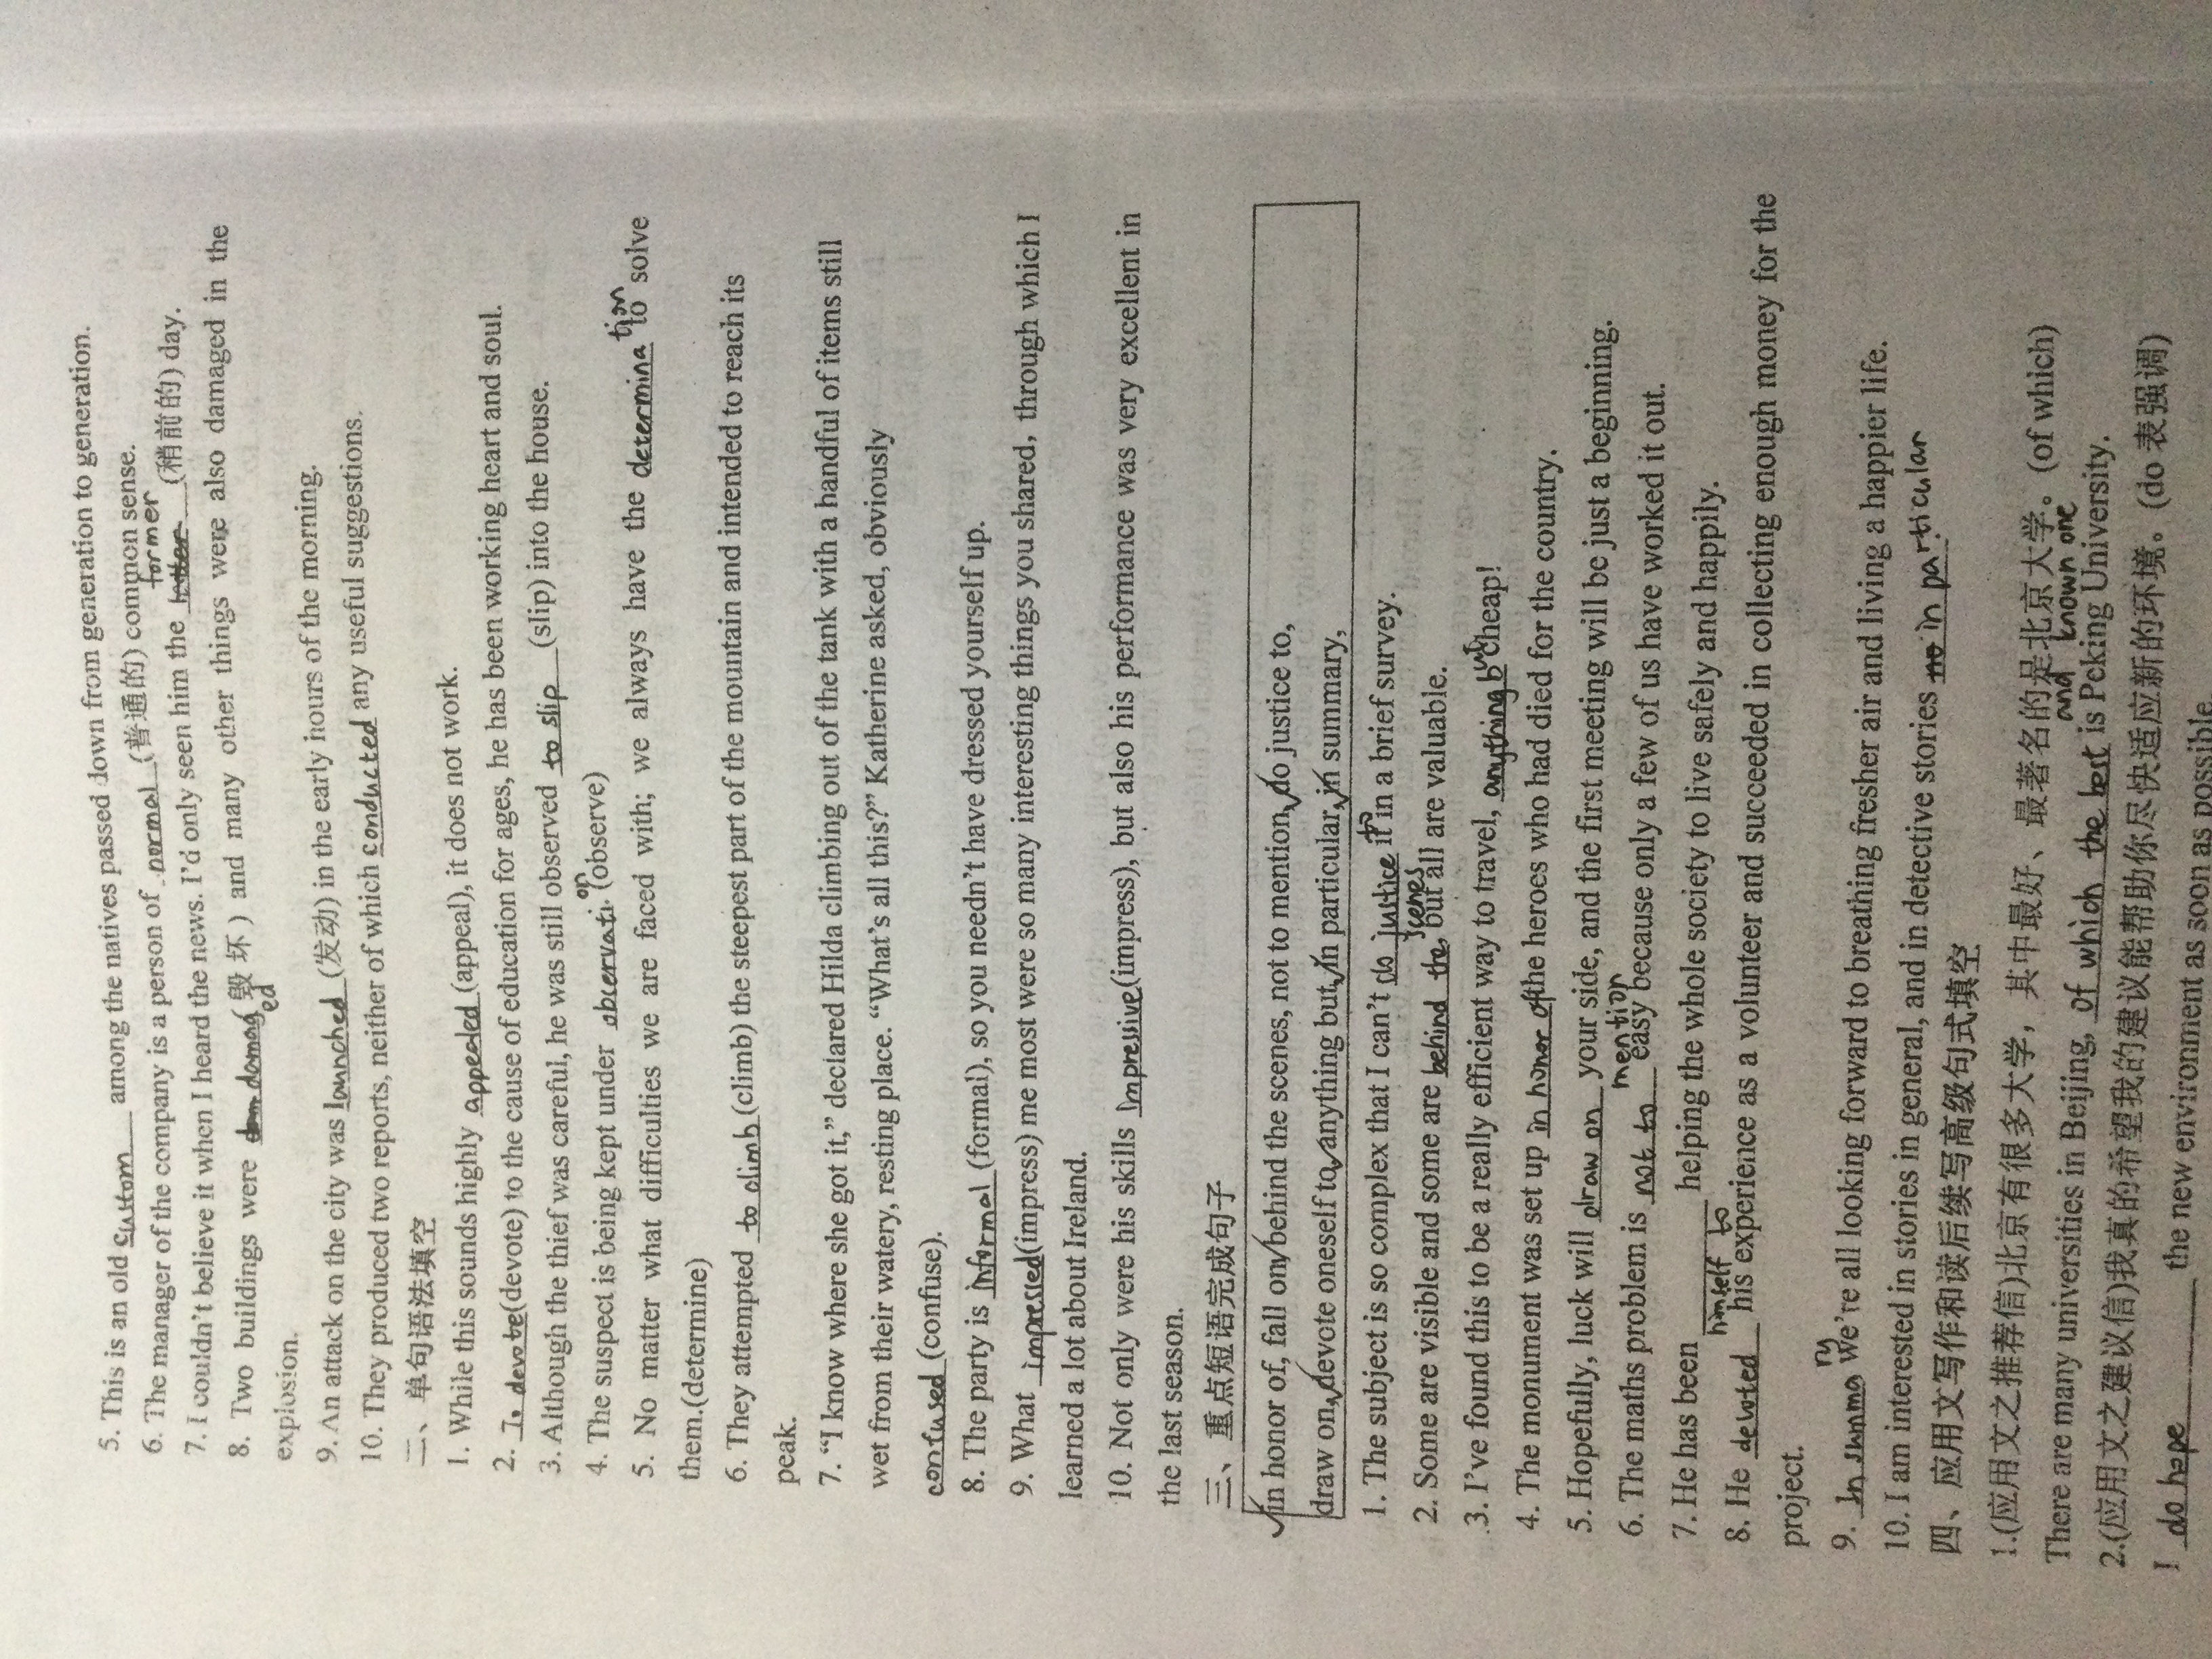 5. This is an old custom among the natives passed down from generation to generation.
6. The manager of the company is a person of normal (普通的) common sense.
former
7. I couldn't believe it when I heard the news. I'd only seen him the (稍前的) day.
8. Two buildings were damaged (毁坏) and many other things were also damaged in the
explosion.
9. An attack on the city was launched (发动) in the early hours of the morning.
10. They produced two reports, neither of which conducted any useful suggestions.
二、单句语法填空
1. While this sounds highly appealed (appeal), it does not work.
2. To devote (devote) to the cause of education for ages, he has been working heart and soul.
3. Although the thief was careful, he was still observed to slip (slip) into the house.
4. The suspect is being kept under observation (observe)
5. No matter what difficulties we are faced with; we always have the determination to solve
them.(determine)
6. They attempted to climb (climb) the steepest part of the mountain and intended to reach its
peak.
7. “I know where she got it,” declared Hilda climbing out of the tank with a handful of items still
wet from their watery, resting place. “What's all this?” Katherine asked, obviously
confused (confuse).
8. The party is informal (formal), so you needn't have dressed yourself up.
9. What impressed (impress) me most were so many interesting things you shared, through which I
learned a lot about Ireland.
10. Not only were his skills impressive (impress), but also his performance was very excellent in
the last season.
三、重点短语完成句子
in honor of, fall on, behind the scenes, not to mention, do justice to,
draw on, devote oneself to, anything but, in particular, in summary,
1. The subject is so complex that I can't do justice to it in a brief survey.
2. Some are visible and some are behind the scenes, but all are valuable.
3. I've found this to be a really efficient way to travel, anything but cheap!
4. The monument was set up in honor of the heroes who had died for the country.
5. Hopefully, luck will draw on your side, and the first meeting will be just a beginning.
6. The maths problem is not to mention easy because only a few of us have worked it out.
7. He has been helping the whole society to live safely and happily.
8. He devoted himself to his experience as a volunteer and succeeded in collecting enough money for the
project.
9. In summary we're all looking forward to breathing fresher air and living a happier life.
10. I am interested in stories in general, and in detective stories in particular.
四、应用文写作和读后续写高级句式填空
1.(应用文之推荐信)北京有很多大学，其中最好、最著名的是北京大学。(of which)
and known one
There are many universities in Beijing, of which the best is Peking University.
2.(应用文之建议信)我真的希望我的建议能帮助你尽快适应新的环境。(do 表强调)
I do hope the new environment as soon as possible.